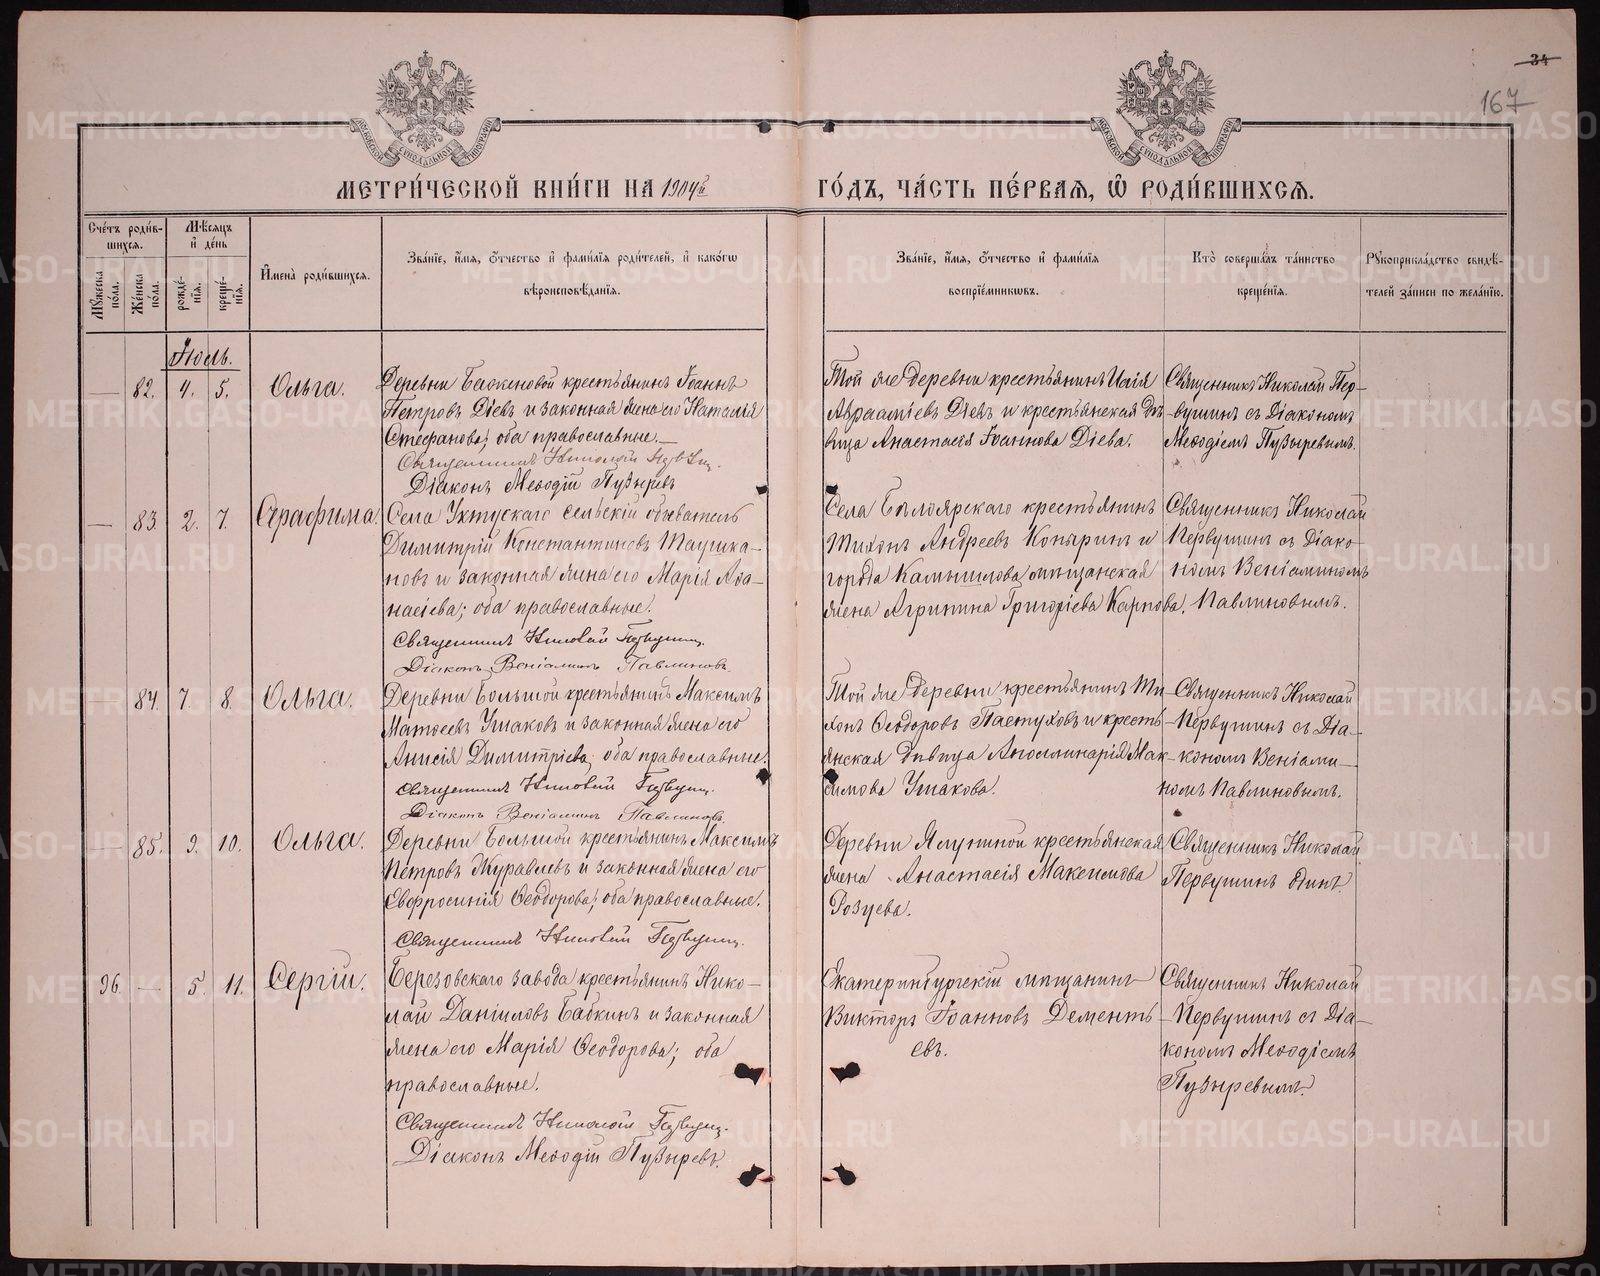 34
167
МЕТРИ́ЧЕСКОЙ КНИ́ГИ НА 1904й
ГО́ДЪ, ЧА́СТЬ ПЕ́РВАѦ, Ѡ РОДИ́ВШИХСѦ.
Сче́тъ роди́вшихсѧ.
Мꙋ́жеска по́ла.
Же́нска по́ла.
Мѣ́сѧцъ и де́нь
рожде́нїѧ.
креще́нїѧ.
Имена̀ роди́вшихсѧ.
Зва́нїе, и́мѧ, ѻ́тчество и фами́лїѧ роди́телей, и како́гѡ
вѣроисповѣ́данїѧ.
Зва́нїе, и́мѧ, ѻ́тчество и фами́лїѧ
воспрїе́мникѡвъ.
Кто̀ соверша́лъ та́инство
креще́нїѧ.
Рꙋкоприкла́дство свидѣ́-
телей за́писи по жела́нїю.
Іюль.
— 82. 4. 5. Ольга.
Деревни Баженовой крестьянинъ Іоаннъ
Петровъ Діевъ и законная жена его Наталія
Стефанова; оба православные.—
Священникъ Николай
Діаконъ Меѳодій Пузыревъ
Той же деревни крестьянинъ Илія
Авраміевъ Діевъ и крестьянская дѣ-
вица Анастасія Іоаннова Діева.
Священникъ Николай Пер-
вушинъ съ Діакономъ
Меѳодіемъ Пузыревымъ.
— 83 2. 7. Серафима.
Села Уктусскаго сельскій обыватель
Димитрій Константиновъ Таушка-
новъ и законная жена его Марія Аѳа-
насіева; оба православные.
Священникъ Николай Первушинъ.
Діаконъ Веніаминъ Павлиновъ.
Села Бѣлоярскаго крестьянинъ
Тихонъ Андреевъ Копыринъ и
города Камышлова мѣщанская
жена Агрипина Григоріева Карпова.
Священникъ Николай
Первушинъ съ Діако-
номъ Веніаминомъ
Павлиновымъ.
— 84. 7. 8. Ольга.
Деревни Большой крестьянинъ Максимъ
Матѳеевъ Ушаковъ и законная жена его
Анисія Димитріева; оба православные.
Священникъ Николай Первушинъ.
Діаконъ Веніаминъ Павлиновъ.
Той же деревни крестьянинъ Ти-
хонъ Ѳеодоровъ Пастуховъ и кресть-
янская дѣвица Аполлинарія Мак-
симова Ушакова.
Священникъ Николай
Первушинъ съ Діа-
кономъ Веніами-
номъ Павлиновымъ.
— 85. 9. 10. Ольга.
Деревни Большой крестьянинъ Максимъ
Петровъ Журавлевъ и законная жена его
Евфросинія Ѳеодорова; оба православные.
Священникъ Николай Первушинъ.
Деревни Ялуниной крестьянская
жена Анастасія Максимова
Розуева.
Священникъ Николай
Первушинъ одинъ.
96. — 5. 11. Сергій.
Березовскаго завода крестьянинъ Нико-
лай Даніиловъ Бабкинъ и законная
жена его Марія Ѳеодорова; оба
православные.
Священникъ Николай Первушинъ.
Діаконъ Меѳодій Пузыревъ.
Екатеринбургскій мѣщанинъ
Викторъ Іоанновъ Дементь-
евъ.
Священникъ Николай
Первушинъ съ Діа-
кономъ Меѳодіемъ
Пузыревымъ.